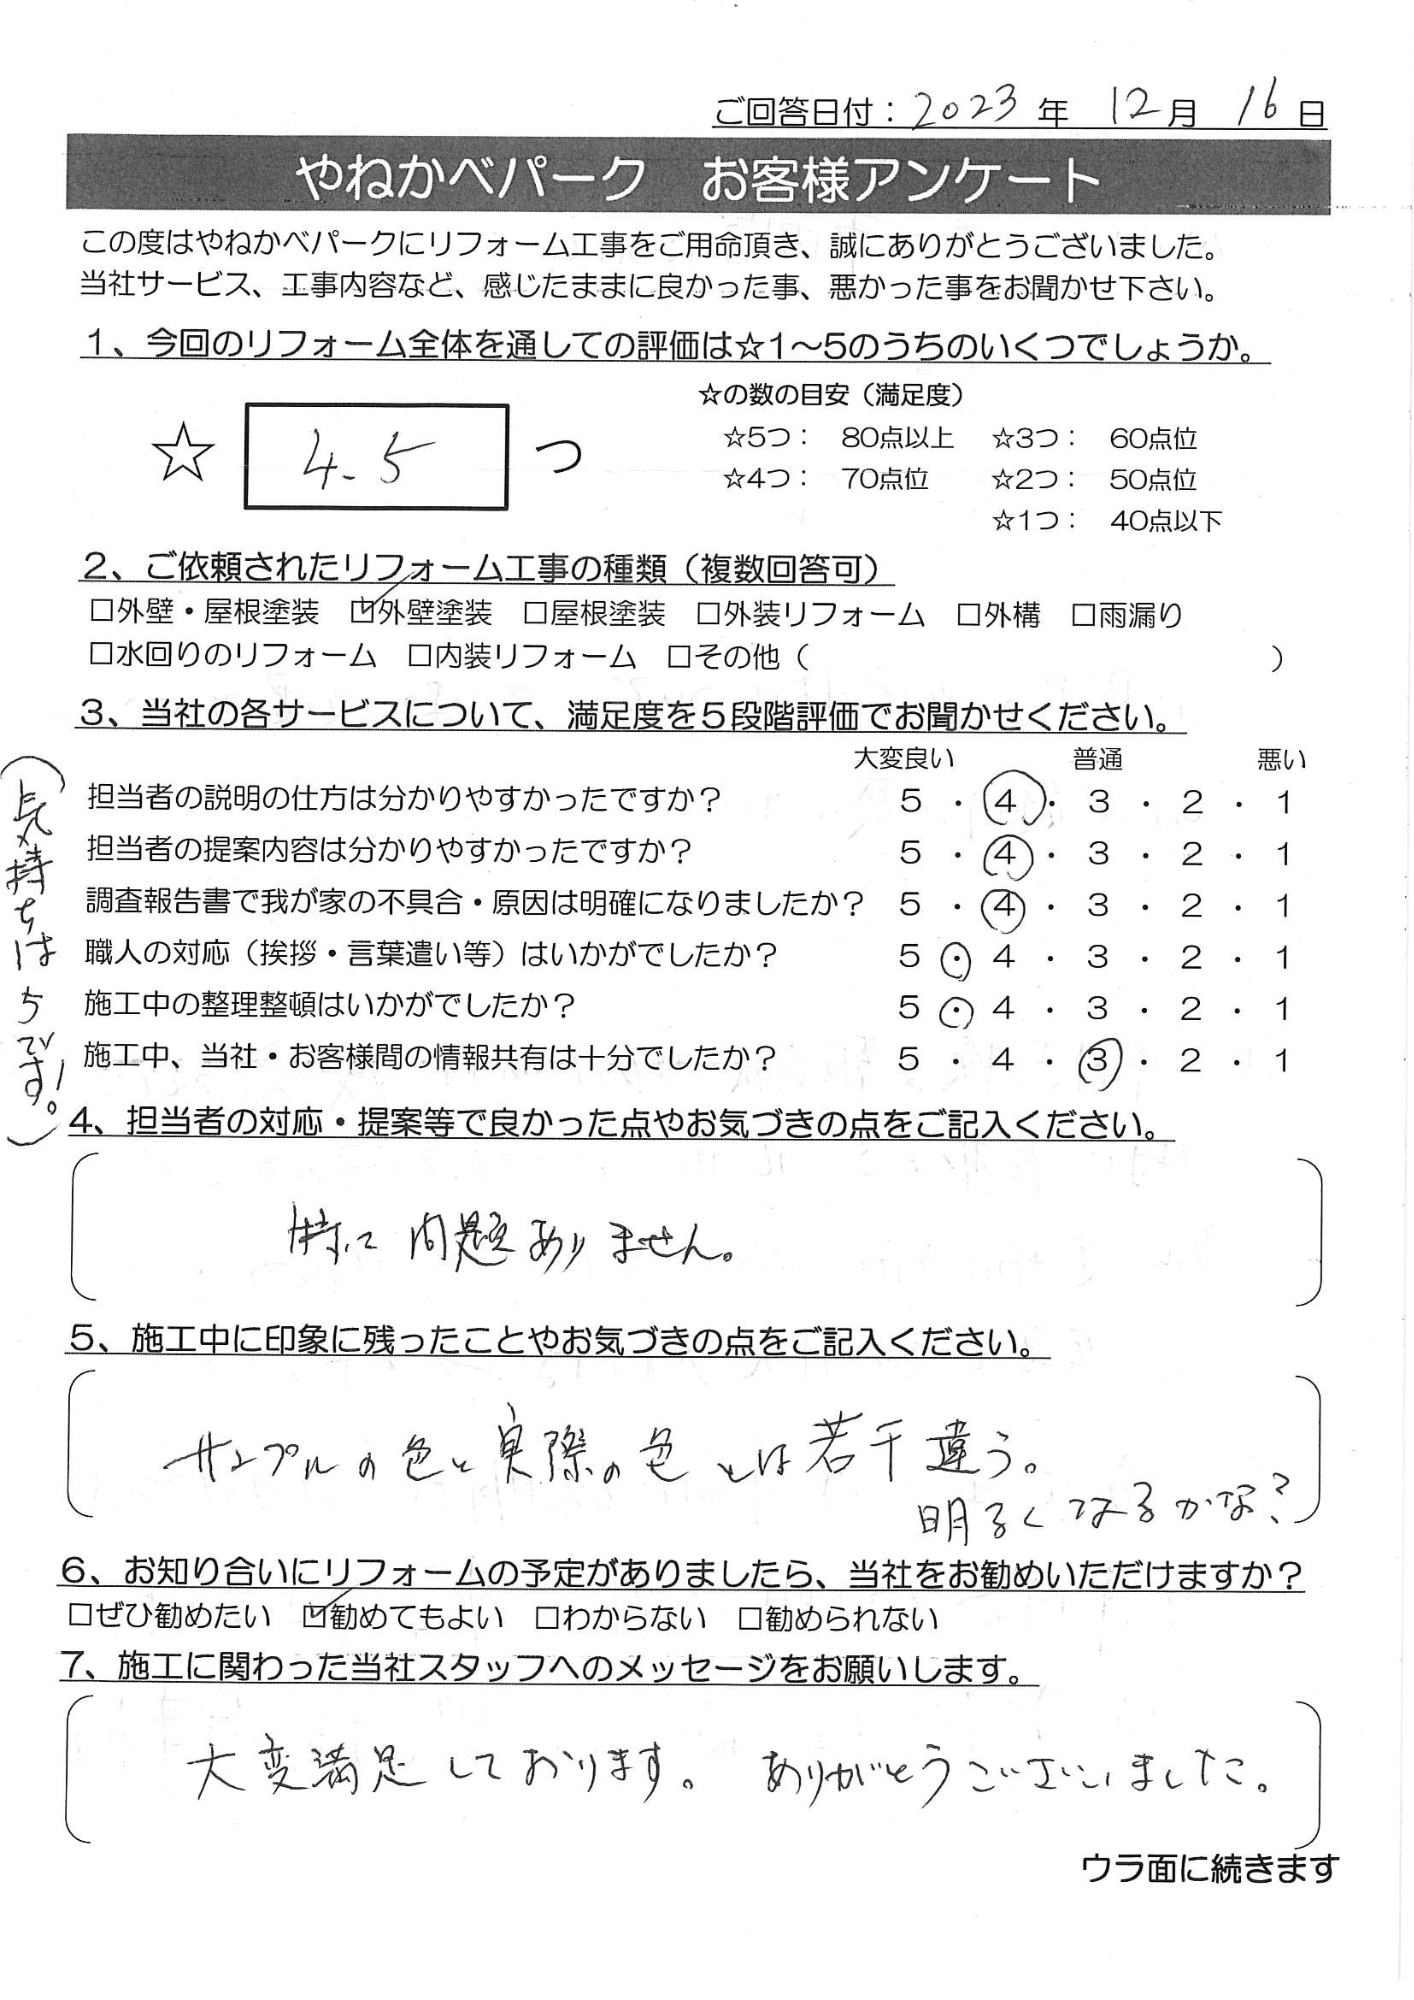 ご回答日付：2023年 12月 16日
やねかべパーク　お客様アンケート
この度はやねかべパークにリフォーム工事をご用命頂き、誠にありがとうございました。
当社サービス、工事内容など、感じたままに良かった事、悪かった事をお聞かせ下さい。
1、今回のリフォーム全体を通しての評価は☆1～5のうちのいくつでしょうか。
☆の数の目安（満足度）
☆ 4.5 つ
☆5つ：　80点以上　☆3つ：　60点位
☆4つ：　70点位　☆2つ：　50点位
☆1つ：　40点以下
2、ご依頼されたリフォーム工事の種類（複数回答可）
□外壁・屋根塗装　☑外壁塗装　□屋根塗装　□外装リフォーム　□外構　□雨漏り
□水回りのリフォーム　□内装リフォーム　□その他（　　　　　）
3、当社の各サービスについて、満足度を5段階評価でお聞かせください。
大変良い　普通　悪い
担当者の説明の仕方は分かりやすかったですか？　5・4・3・2・1
担当者の提案内容は分かりやすかったですか？　5・4・3・2・1
調査報告書で我が家の不具合・原因は明確になりましたか？　5・4・3・2・1
職人の対応（挨拶・言葉遣い等）はいかがでしたか？　5・4・3・2・1
施工中の整理整頓はいかがでしたか？　5・4・3・2・1
施工中、当社・お客様間の情報共有は十分でしたか？　5・4・3・2・1
（気持ちは5です！。）
4、担当者の対応・提案等で良かった点やお気づきの点をご記入ください。
特に問題ありません。
5、施工中に印象に残ったことやお気づきの点をご記入ください。
サンプルの色と実際の色とは若干違う。
明るくなるかな？
6、お知り合いにリフォームの予定がありましたら、当社をお勧めいただけますか？
□ぜひ勧めたい　☑勧めてもよい　□わからない　□勧められない
7、施工に関わった当社スタッフへのメッセージをお願いします。
大変満足しております。ありがとうございました。
ウラ面に続きます